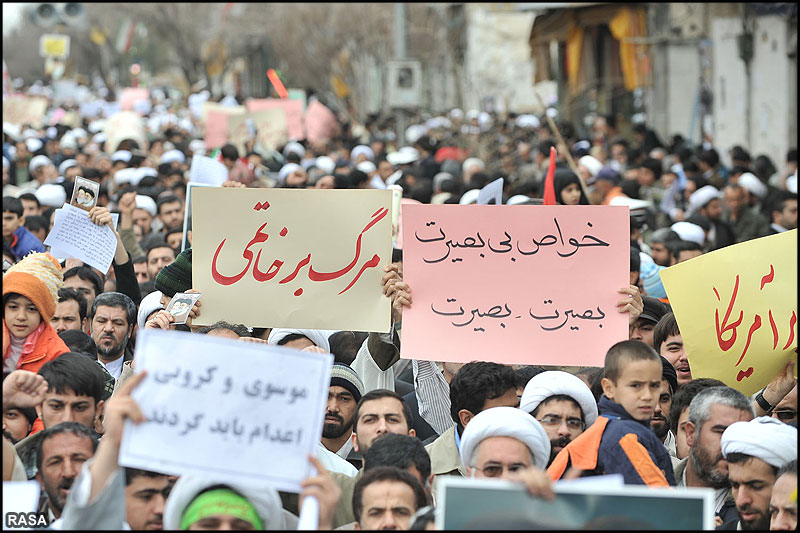 مرگ بر خاتمی
خواص بی بصیرت
بصیرت - بصیرت
آمریکا
موسوی و کروبی
اعدام باید گردند
RASA